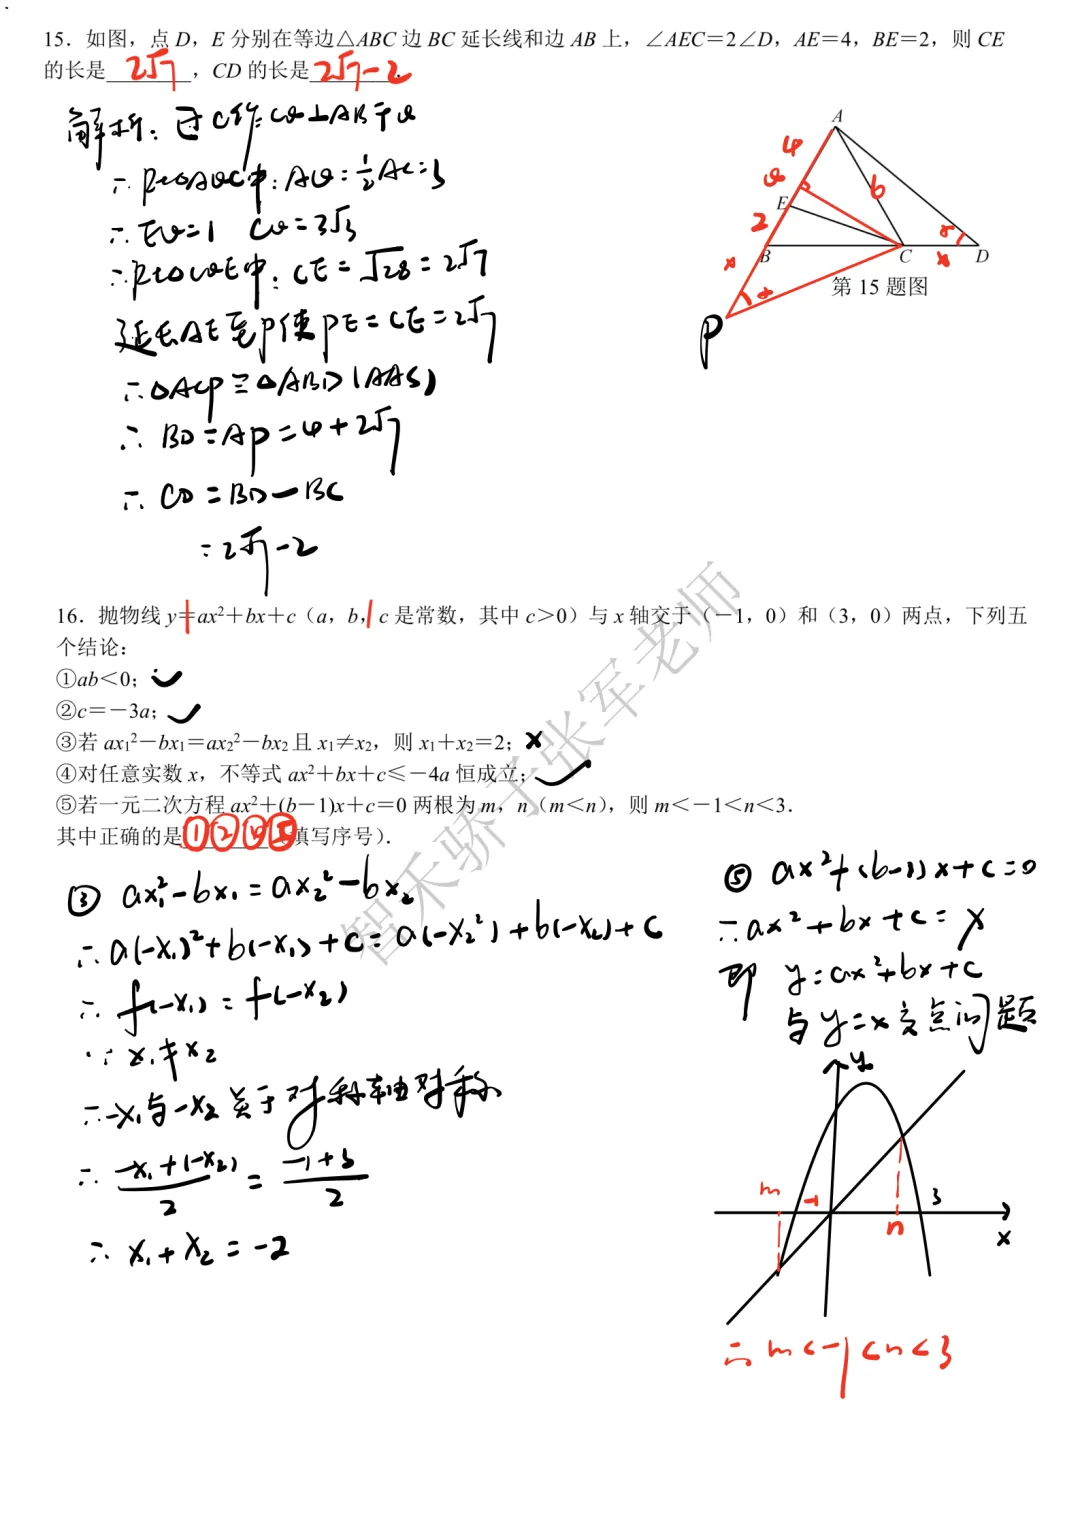 15．如图，点 D，E 分别在等边△ABC 边 BC 延长线和边 AB 上，∠AEC＝2∠D，AE＝4，BE＝2，则 CE
的长是 2√7 ，CD 的长是 2√7-2 .
解析：过C作CQ⊥AB于Q
∴Rt△AQC中：AQ=½AC=3
∴EQ=1 CQ=3√3
∴Rt△CQE中：CE=√28=2√7
延长AE至P使PE=CE=2√7
∴△ACP≌△ABD(AAS)
∴BD=AP=4+2√7
∴CD=BD-BC
=2√7-2
A
4
Q
6
E
2
α
x
B
C
x
D
α
P
第 15 题图
16．抛物线 y＝ax²＋bx＋c（a，b，c 是常数，其中 c＞0）与 x 轴交于（－1，0）和（3，0）两点，下列五
个结论：
①ab＜0；✓
②c＝－3a；✓
③若 ax₁²－bx₁＝ax₂²－bx₂ 且 x₁≠x₂，则 x₁＋x₂＝2；×
④对任意实数 x，不等式 ax²＋bx＋c≤－4a 恒成立；✓
⑤若一元二次方程 ax²＋(b－1)x＋c＝0 两根为 m，n（m＜n），则 m＜－1＜n＜3．
其中正确的是 ①②④⑤ 填写序号）．
③ ax₁²-bx₁=ax₂²-bx₂
∴a(-x₁)²+b(-x₁)+c=a(-x₂²)+b(-x₂)+c
∴f(-x₁)=f(-x₂)
∵x₁≠x₂
∴-x₁与-x₂关于对称轴对称
∴(-x₁+(-x₂))/2=(-1+3)/2
∴x₁+x₂=-2
⑤ ax²+(b-1)x+c=0
∴ax²+bx+c=x
即 y=ax²+bx+c
与y=x交点问题
y
m
-1
n
3
x
∴m<-1<n<3
智禾骄子张军老师